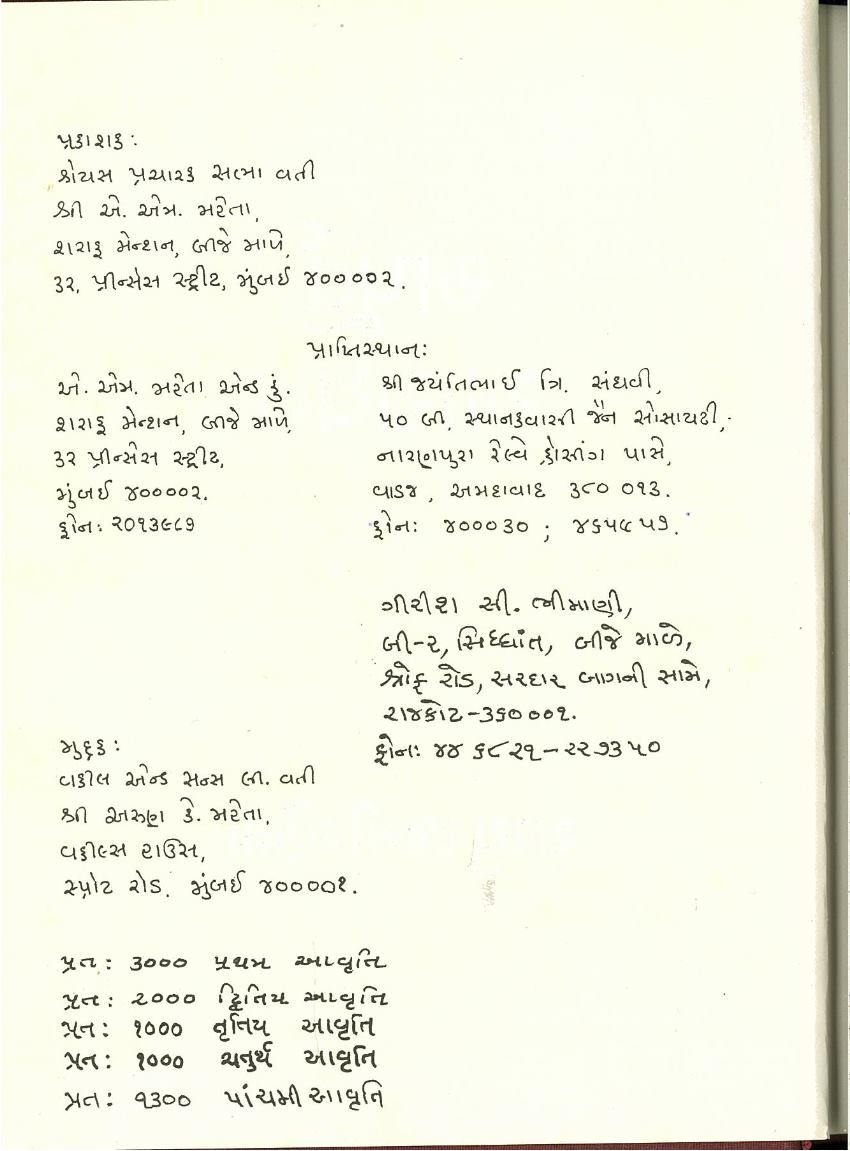 પ્રકાશક:
શ્રેયસ પ્રચારક સભા વતી
શ્રી એ. એમ. મહેતા,
શરાફ મેન્શન, બીજે માળે,
૩૨, પ્રીન્સેસ સ્ટ્રીટ, મુંબઈ ૪૦૦૦૦૨.
પ્રાપ્તિસ્થાન:
એ. એમ. મહેતા એન્ડ કું.
શરાફ મેન્શન, બીજે માળે,
૩૨ પ્રીન્સેસ સ્ટ્રીટ,
મુંબઈ ૪૦૦૦૦૨.
ફોન: ૨૦૧૩૯૮૭
શ્રી જયંતિભાઈ ત્રિ. સંઘવી,
૫૦ બી, સ્થાનકવાસી જૈન સોસાયટી,
નારણપુરા રેલ્વે ક્રોસીંગ પાસે,
વાડજ, અમદાવાદ ૩૮૦ ૦૧૩.
ફોન: ૪૦૦૦૩૦ ; ૪૬૫૯૫૭.
ગીરીશ સી. ભીમાણી,
બી-૨, સિધ્ધાંત, બીજે માળે,
શ્રોફ રોડ, સરદાર બાગની સામે,
રાજકોટ-૩૬૦૦૦૧.
ફોન: ૪૪ ૬૮૨૧-૨૨૭૩૫૦
મુદ્રક:
વકીલ એન્ડ સન્સ લી. વતી
શ્રી અરુણ કે. મહેતા,
વકીલ્સ હાઉસ,
સ્પ્રોટ રોડ, મુંબઈ ૪૦૦૦૦૧.
પ્રત: ૩૦૦૦ પ્રથમ આવૃતિ
પ્રત: ૨૦૦૦ દ્વિતિય આવૃતિ
પ્રત: ૧૦૦૦ તૃતિય આવૃતિ
પ્રત: ૧૦૦૦ ચતુર્થ આવૃતિ
પ્રત: ૧૩૦૦ પાંચમી આવૃતિ